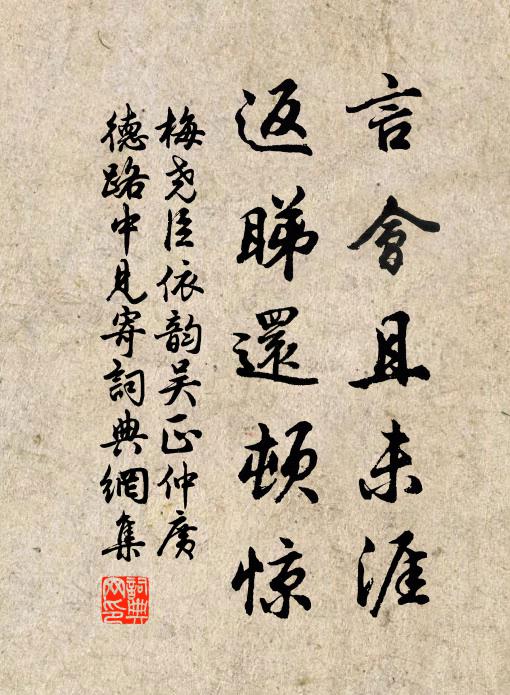 言會且未涯
返睇還頓惊
梅尧臣依韵吴正仲廣
德路中見寄詞典網集
詞典网印